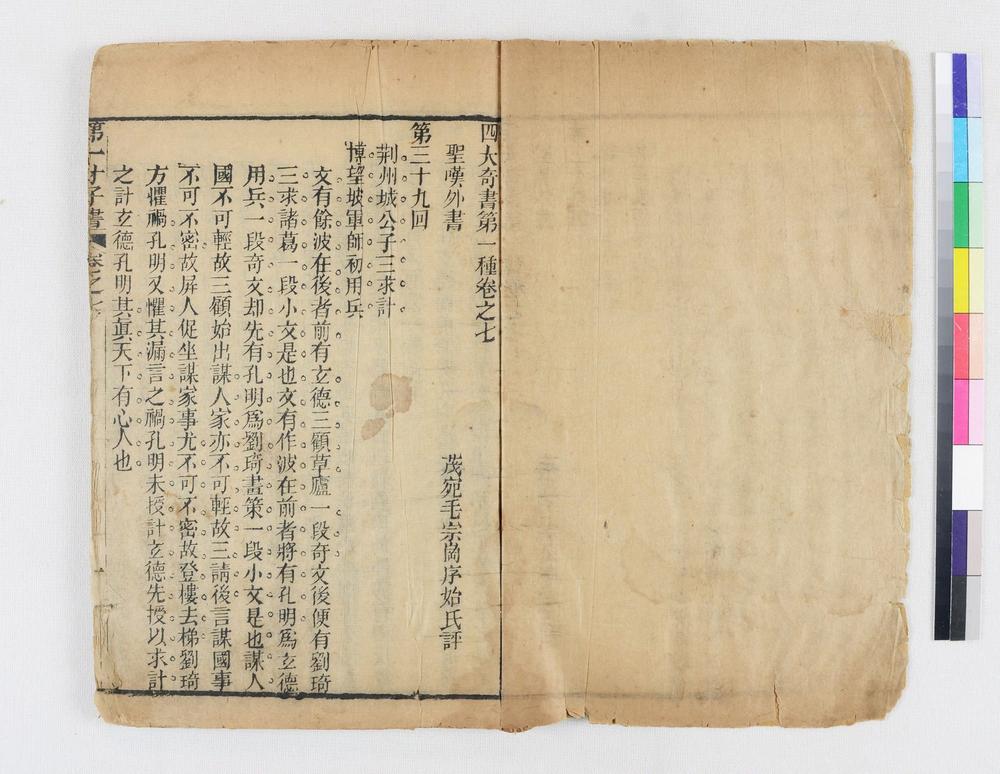 四大奇書第一種卷之七
聖嘆外書
茂宛毛宗崗序始氏評
第三十九回
荆州城公子三求計
博望坡軍師初用兵
文有餘波在後者前有玄德三顧草廬一段奇文後便有劉琦
三求諸葛一段小文是也文有作波在前者將有孔明爲玄德
用兵一段奇文却先有孔明爲劉琦畫策一段小文是也謀人
國不可輕故三顧始出謀人家亦不可輕故三請後言謀國事
不可不密故屏人促坐謀家事尤不可不密故登樓去梯劉琦
方懼禍孔明又懼其漏言之禍孔明未授計玄德先授以求計
之計玄德孔明其眞天下有心人也
第一才子書
卷之七